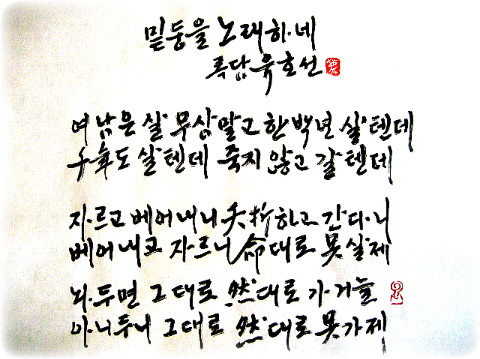 밑둥을 노래하네
록담 육호선
여남은 살 무삼말고 한 백년 살텐데
千年도 살텐데 죽지 않고 갈텐데
자르고 베어내니 夭折하고 간다니
베어내고 자르니 命대로 못살제
놔두면 그대로 然대로 가거늘
아니두니 그대로 然대로 못가제